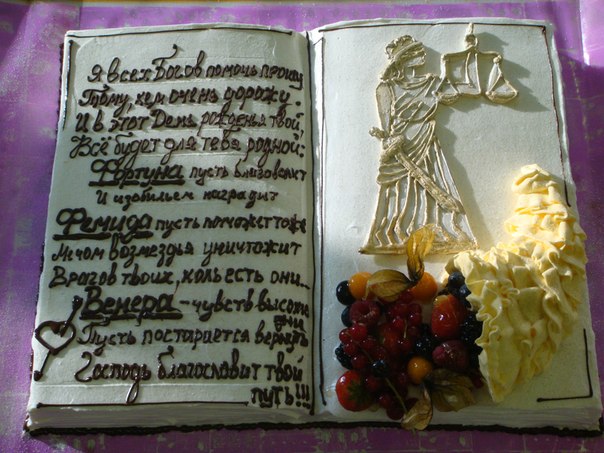 Я всех Богов помочь прошу
Тому, кем очень дорожу.
И в этот День рожденья твой,
Всё будет для тебя родной:
Фортуна пусть благоволит
И изобильем наградит
Фемида пусть поможет тоже
Мечом возмездья уничтожит
Врагов твоих, коль есть они...
Венера - чувств высоких
Пусть постарается вернуть
дни
Господь благославит твой
путь!!!